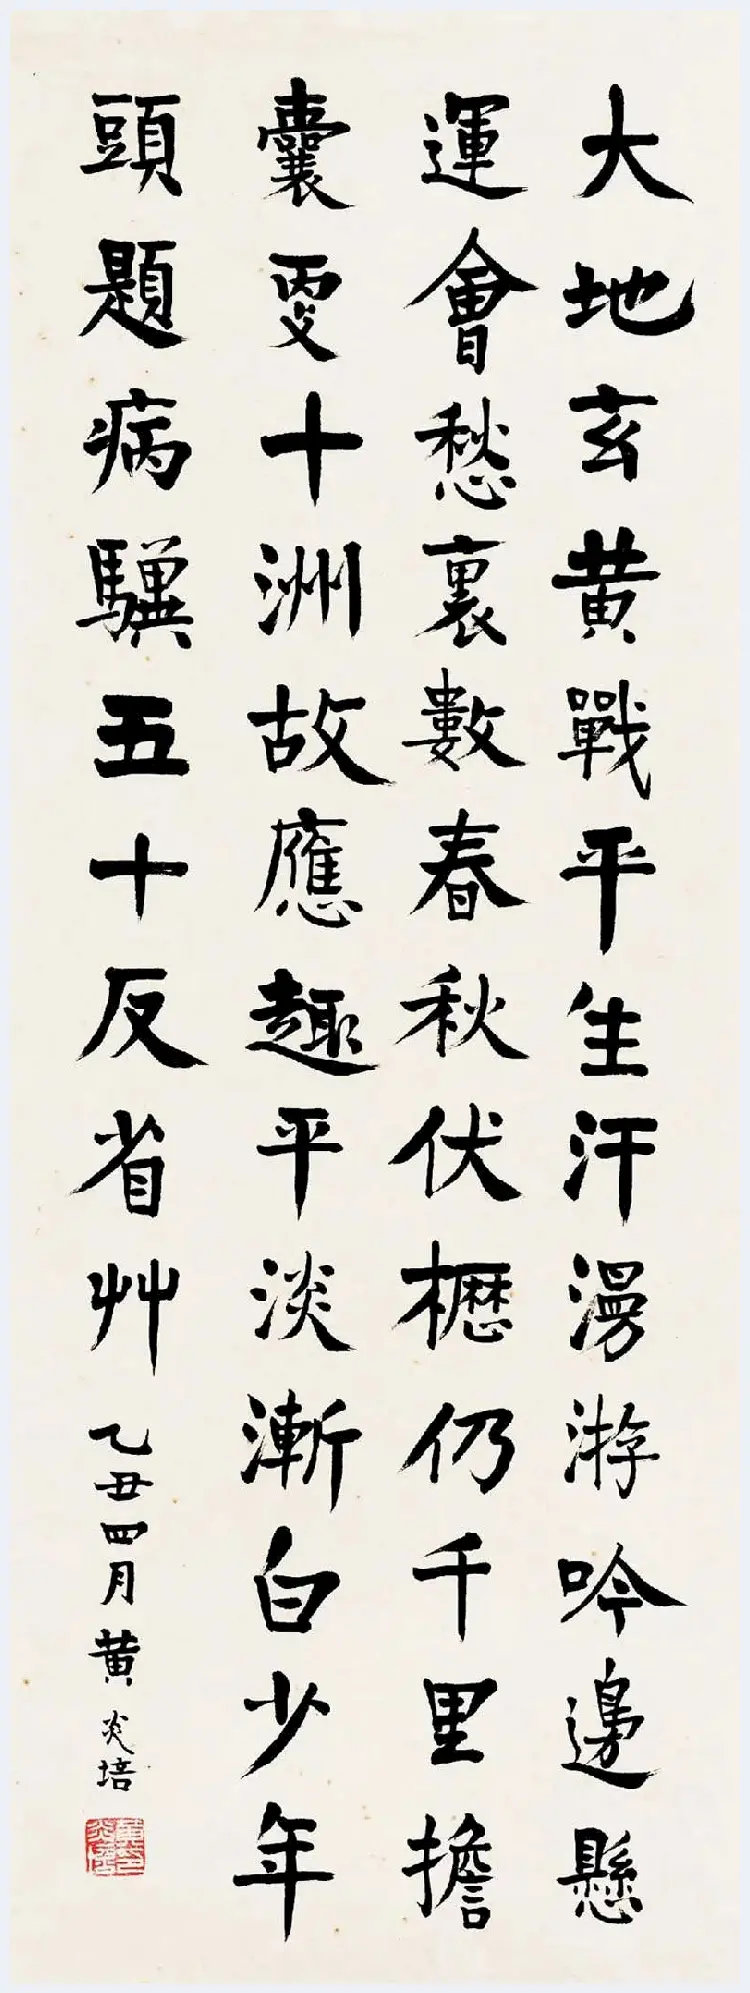 大地玄黄戰平生汗漫游吟邊懸
運會愁裏數春秋伏櫪仍千里擔
囊更十洲故應趣平淡漸白少年
頭題病驥五十反省艸
乙丑四月黄炎培